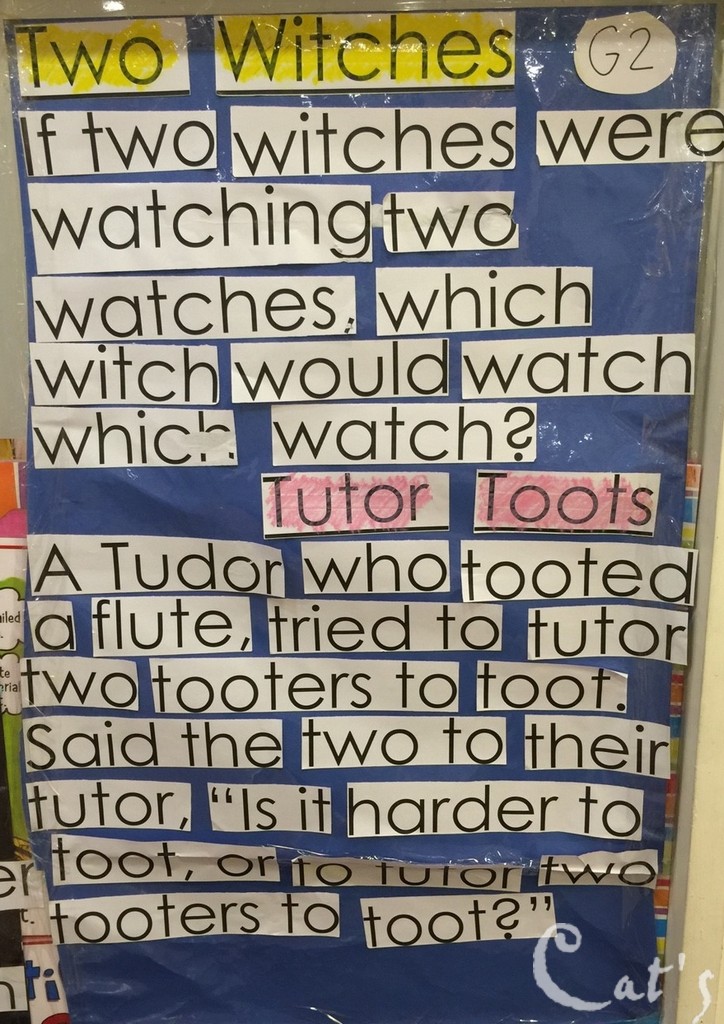 Two Witches G2
If two witches were
watching two
watches, which
witch would watch
which watch?
Tutor Toots
A Tudor who tooted
a flute, tried to tutor
two tooters to toot.
Said the two to their
tutor, "Is it harder to
toot, or to tutor two
tooters to toot?"
Cat's